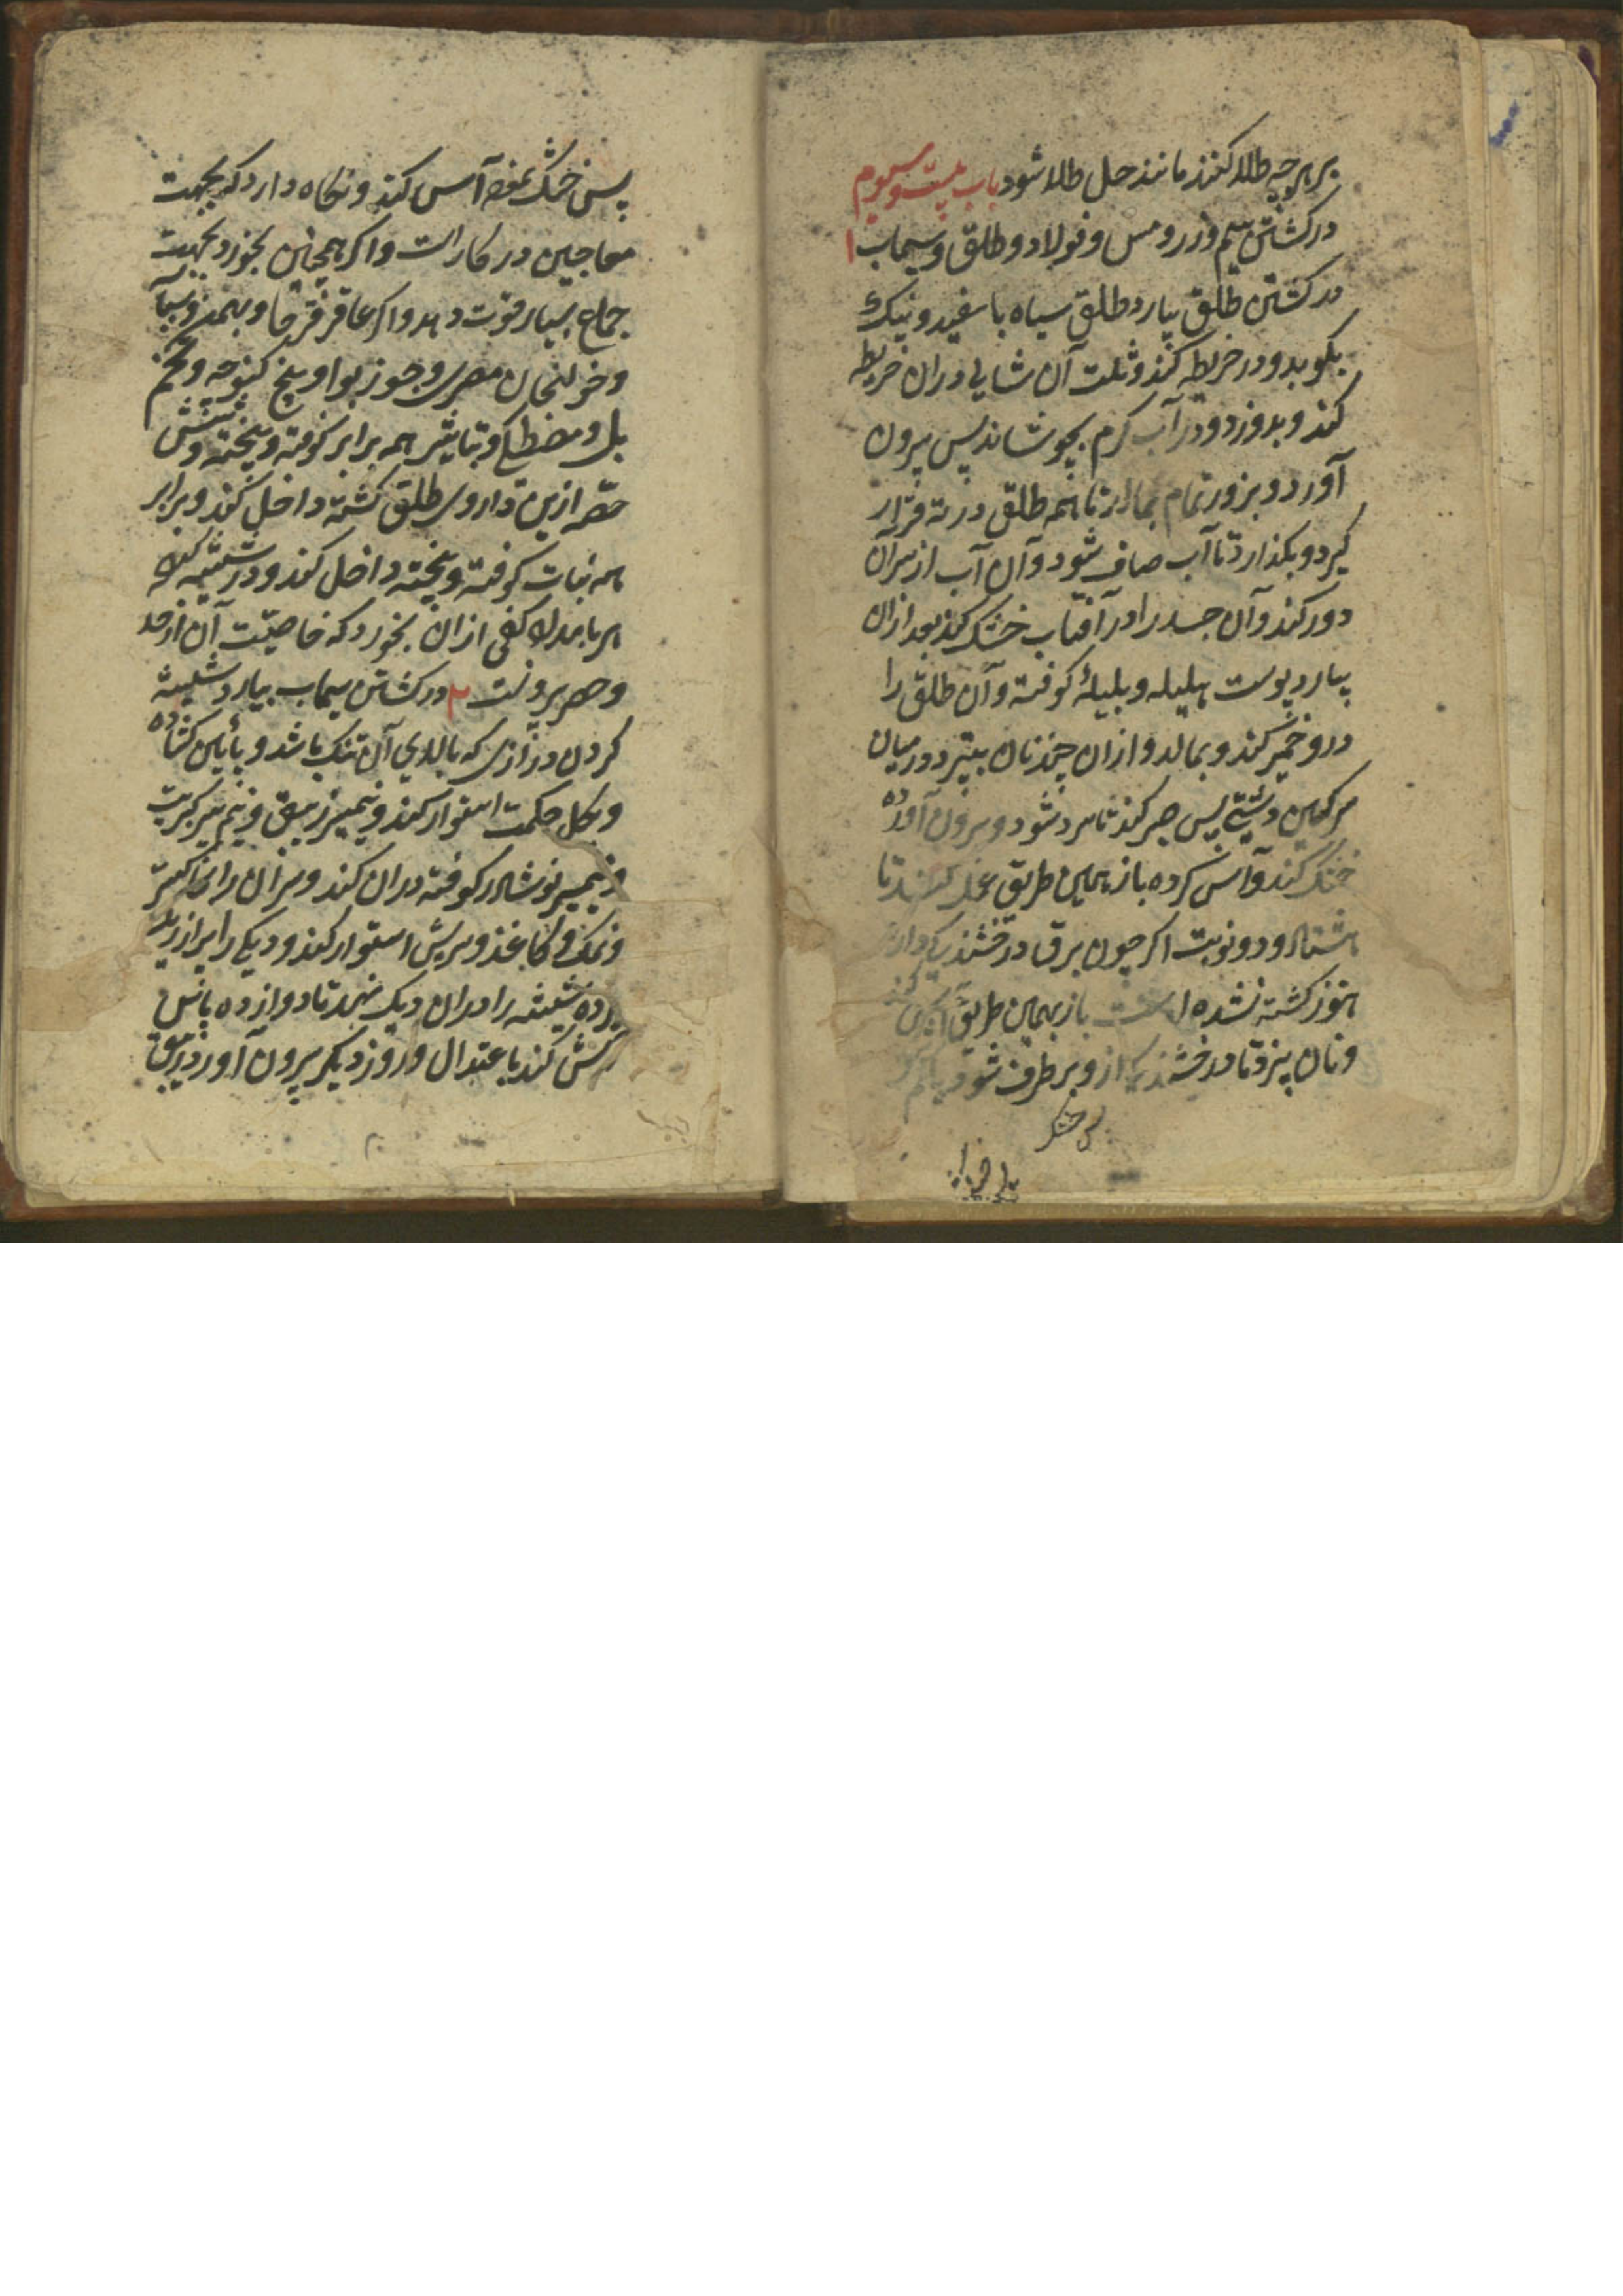 بر هر چه طلا کنند مانند حل طلا شود باب بیست و سیوم
در کشتن سیم و زر و مس و فولاد و طلق و سیماب ۱
در کشتن طلق بیارد طلق سیاه یا سفید و نیک
بکوبد و در خریطه کند و ثلث آن شالی در ان خریطه
کند و بدوزد و در آب کرم بجوشاند پس بیرون
آورد و بزور تمام بمالد تا همه طلق در ته قرار
کیرد و بکذارد تا آب صاف شود و آن آب از سر آن
دور کند و آن جسد را در آفتاب خشک کند بعد ازان
بیارد پوست هلیله و بلیله کوفته و آن طلق را
درو خمیر کند و بمالد و ازان چند نان بپزد در میان
سرکین دشتی پس صبر کند تا سرد شود و بیرون آورده
خشک کند و آس کرده باز بهمین طریق عمل کند تا
هشتاد و دو نوبت اکر چون برق درخشندکی دارد
هنوز کشته نشده است باز بهمین طریق
و نان پزد تا درخشندکی ازو برطرف شود
پس خشک
پس خشک نموده آس کند و نکاه دارد که بجهت
معاجین در کار است و اکر همچنین بخورد بجهت
جماع بسیار قوت دهد و اکر عاقرقرحا و بهمن و
و خولنجان مصری و جوز بوا و بیخ کنوچه و تخم
بل و مصطکی و تباشیر همه برابر کوفته و بیخته و شش
حصه ازین داروی طلق کشته داخل کند و برابر
همه نبات کوفته و بیخته داخل کند و در شیشه کند
هر بامداد کفی ازان بخورد که خاصیت آن از حد
و حصر برونست ۲ در کشتن سیماب بیارد شیشه
کردن درازی که بالای آن تنک باشد و پائین کشاده
و بکل حکمت استوار کند و نیمسیر زیبق و نیم سیر کبریت
و نیمسیر نوشادر کوفته دران کند و سر آن را بخاکستر
و نمک و کاغذ و سریش استوار کند و دیکی را پر از ریک
کرده شیشه را دران دیک نهد تا دوازده پاس
آتش کند باعتدال و روز دیکر بیرون آورد زیبق